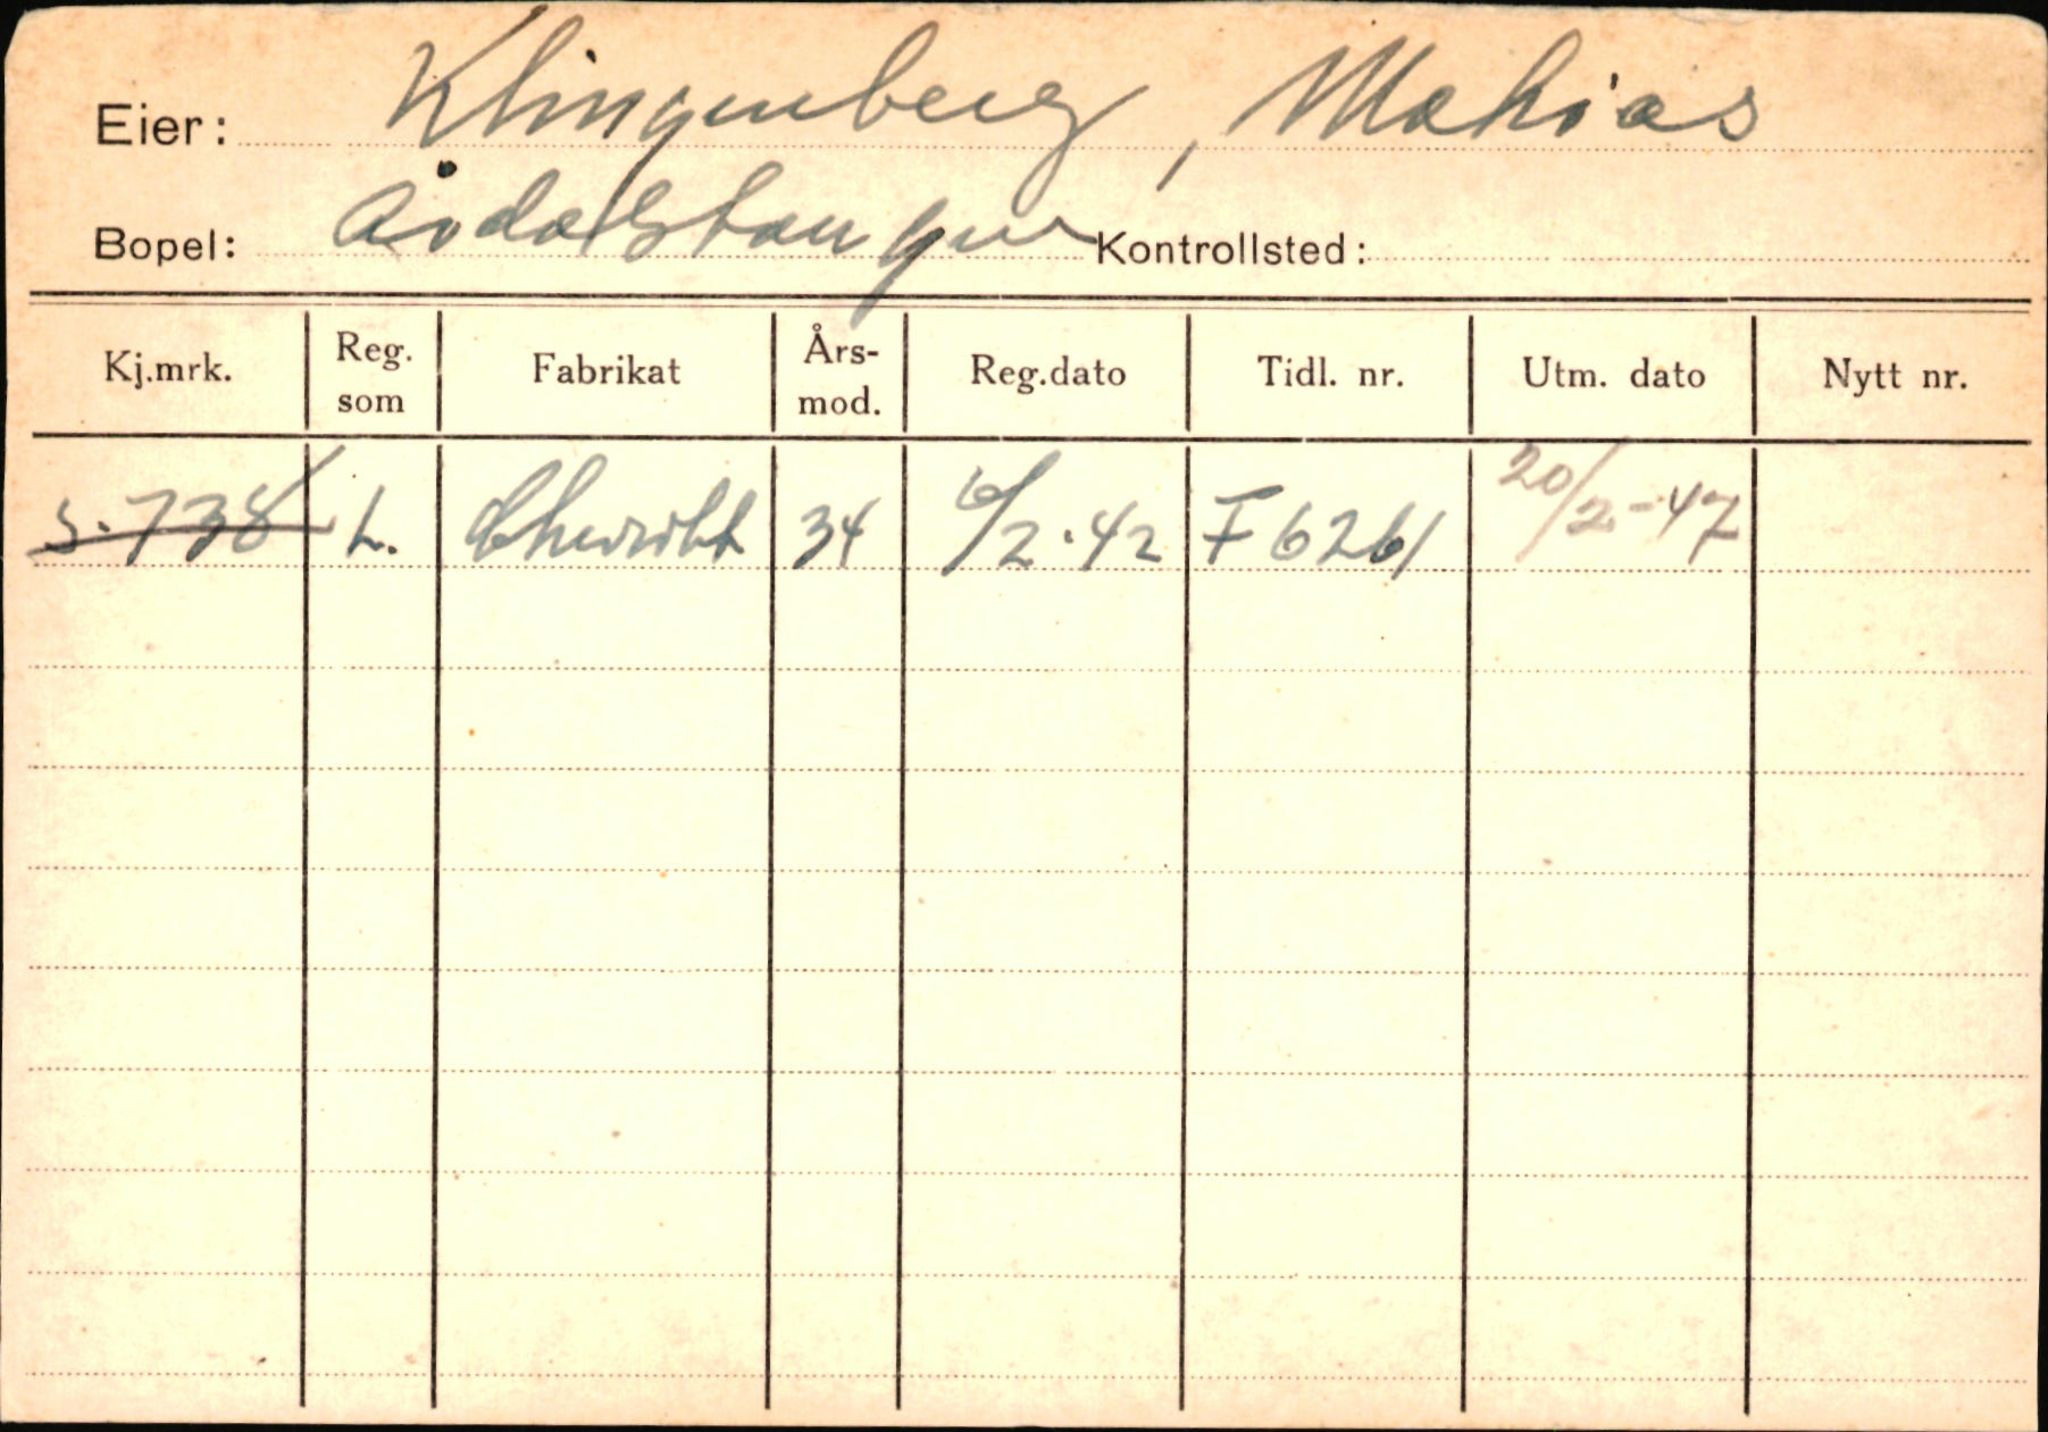 Eier: Klingenberg, Mahias
Bopel: Årdalstangen Kontrollsted:
Kj.mrk. Reg. som Fabrikat Års-mod. Reg.dato Tidl. nr. Utm. dato Nytt nr.
S-738 L. Chevrolet 34 6/2-42 F 6261 20/2-47